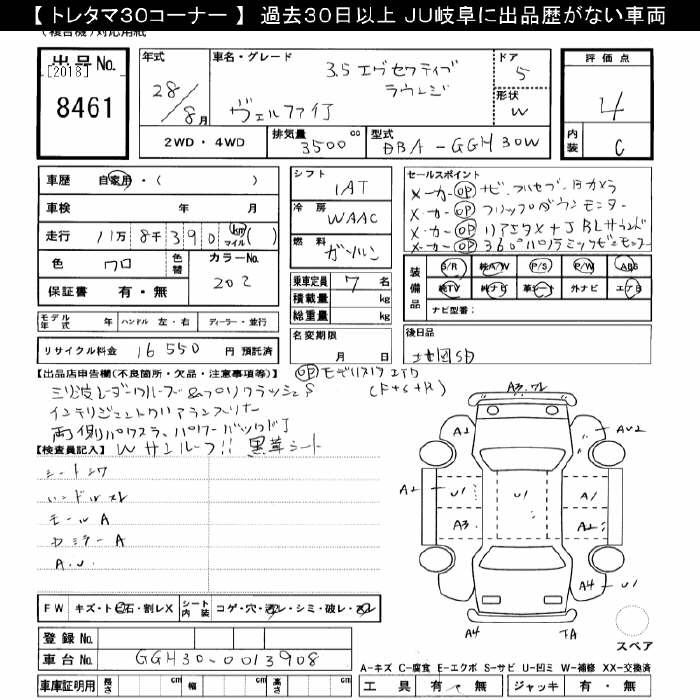 【 トレタマ30コーナー 】 過去30日以上 JU岐阜に出品歴がない車両
(複合機)対応用紙
出品No.
[2018]
8461
年式
28/8月
車名・グレード
3.5 エグゼクティブ
ラウンジ
ヴェルファイア
ドア
5
形状
W
評価点
4
内装
C
2WD・4WD
排気量
3500 cc
型式
DBA-GGH30W
車歴 自家用・( )
車検 年 月
走行 11万 8千 390 km マイル ( )
色 クロ
色替
カラーNo.
202
保証書 有・無
モデル年式 年 ハンドル 左・右 ディーラー・並行
リサイクル料金 16550 円 預託済
シフト
IAT
冷房
WAAC
燃料
ガソリン
乗車定員 7 名
積載量 kg
総重量 kg
名変期限
月 日
セールスポイント
メーカーOP ナビ フルセグ Bカメラ
メーカーOP フリップダウンモニター
メーカーOP リアエンタメ+JBLサウンド
メーカーOP 360°パノラミックビューモニター
装備品
S/R 純A/W P/S P/W ABS
純TV 純ナビ 革シート 外ナビ エアB
ナビ型番:
後日品
地図SD
【出品店申告欄(不良箇所・欠品・注意事項等)】
OP モデリスタ エアロ
(F+S+R)
三眼LED
ミリ波レーダークルーズ&プリクラッシュS
インテリジェントクリアランスソナー
両側パワスラ、パワーバックドア
Wサンルーフ!! 黒革シート
【検査員記入】
シートシワ
ハンドルスレ
モールA
カミラーA
A.U.
FW キズ・ト石・割レX
シート内装 コゲ・穴・汚レ・シミ・破レ・スレ
登録No.
車台No. GGH30-0013908
車庫証明用 長さ cm 幅 cm 高さ cm
A3.ワレ
A1
AU2
A2
U1
U1
A1
A3
A2
A4
U1
A4
スペア
A-キズ C-腐食 E-エクボ S-サビ U-凹ミ W-補修 XX-交換済
工具 有・無 ジャッキ 有・無